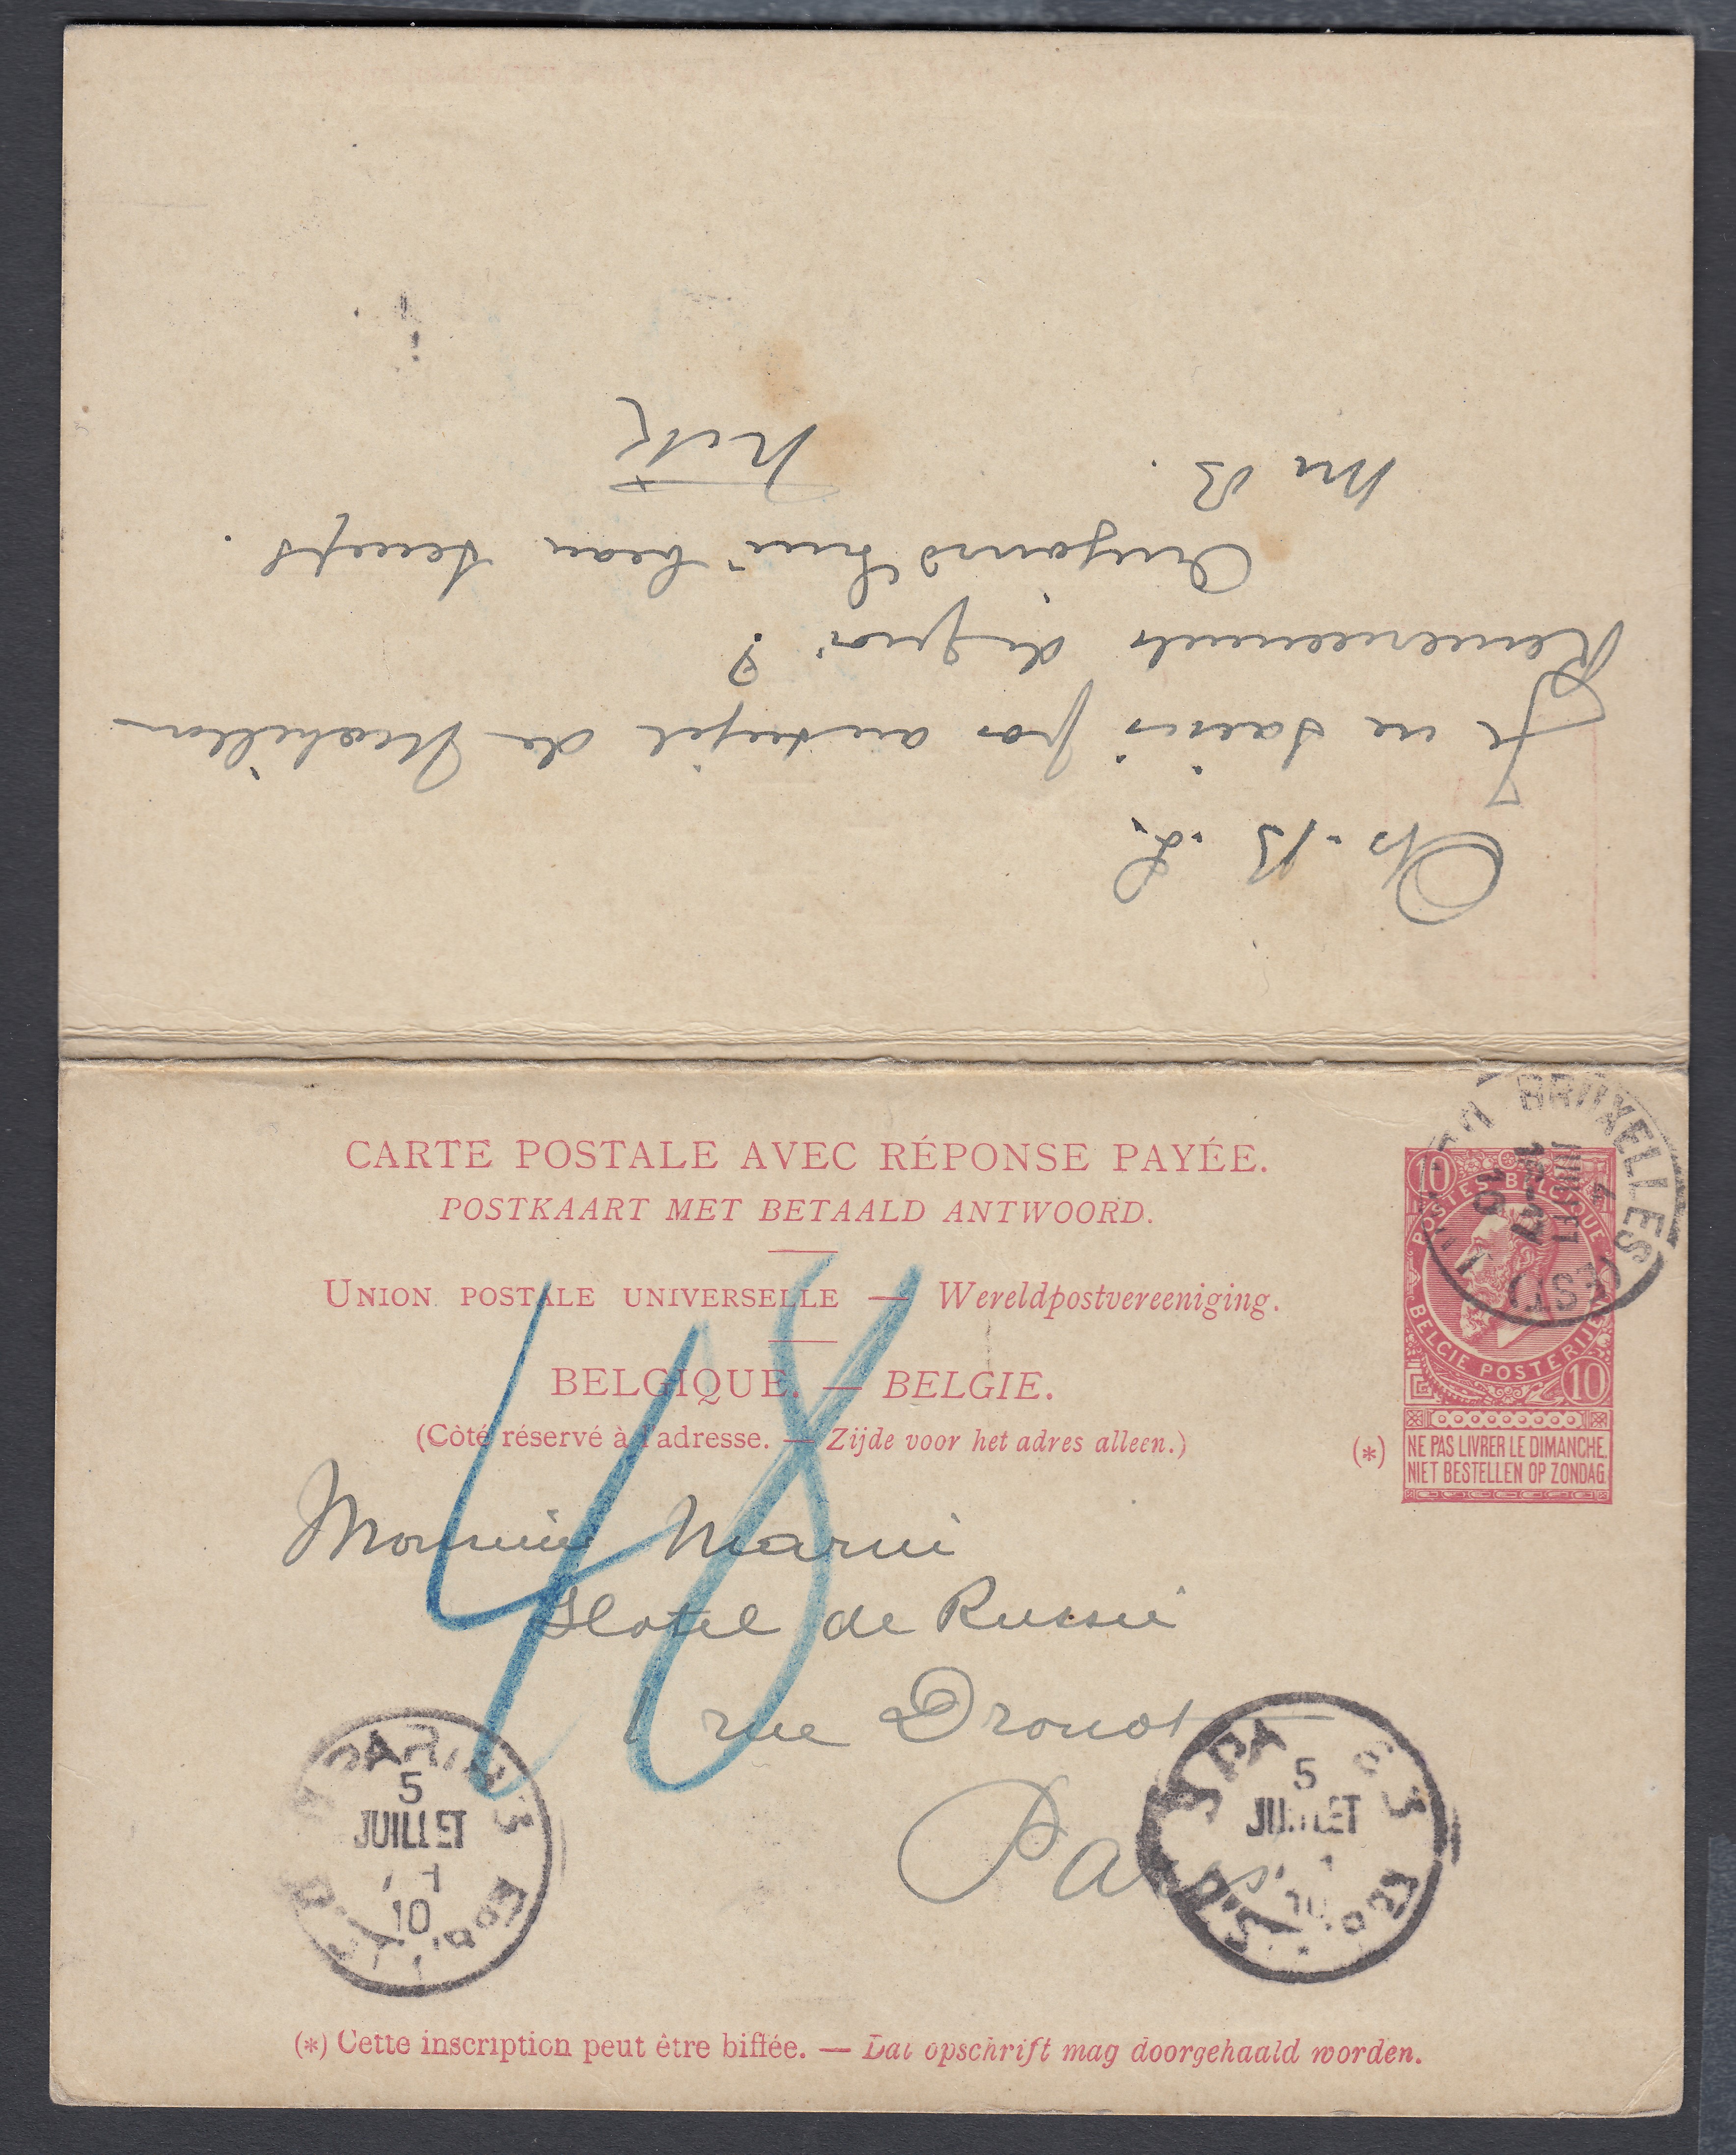 Je ne saisis pas
Remerciements
Aujourd'hui beau temps.
M B.
CARTE POSTALE AVEC RÉPONSE PAYÉE.
POSTKAART MET BETAALD ANTWOORD.
UNION POSTALE UNIVERSELLE — Wereldpostvereeniging.
BELGIQUE. — BELGIE.
(Côté réservé à l'adresse. — Zijde voor het adres alleen.)
10
POSTES BELGIQUE
BELGIE POSTERIJEN
10
(*)
NE PAS LIVRER LE DIMANCHE.
NIET BESTELLEN OP ZONDAG.
BRUXELLES
(EST)
4
JUIL
10
48
Monsieur Marini
Hotel de Russie
1 rue Drouot
Paris
PARIS
5
JUILLET
10
PARIS
5
JUILLET
10
(*) Cette inscription peut être biffée. — Dat opschrift mag doorgehaald worden.